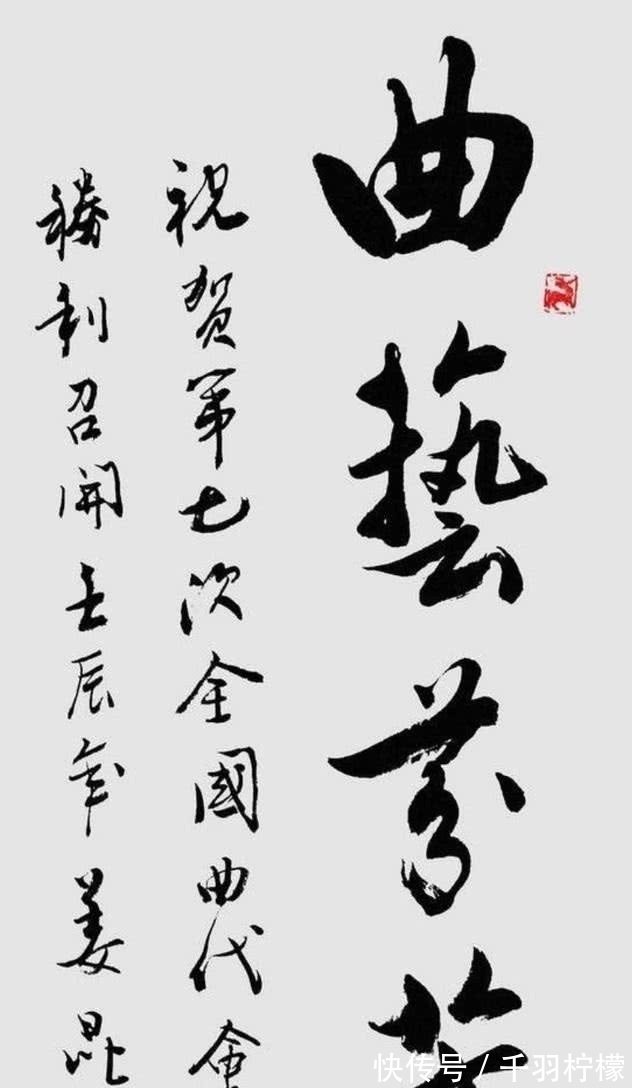 曲藝芬
祝贺第七次全國曲代會
勝利召開壬辰年姜昆
快传号/千羽柠檬